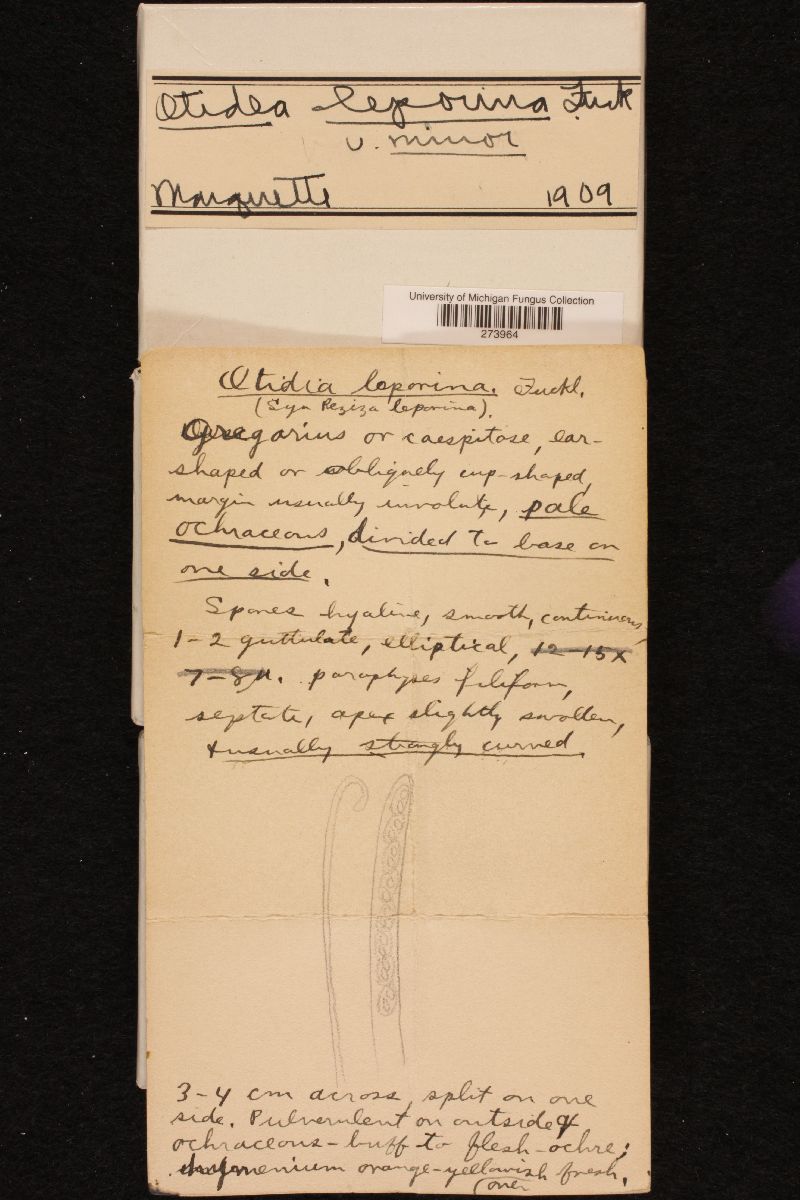 Otidea leporina Fuck
v. minor
Marquette 1909
University of Michigan Fungus Collection
273964
Otidia leporina. Fuckl.
(Syn Peziza leporina).
Gregarius or caespitose, ear-
shaped or obliquely cup-shaped,
margin usually involute, pale
ochraceous, divided to base on
one side.
Spores hyaline, smooth, continuous,
1-2 guttulate, elliptical, 12-15x
7-8µ. paraphyses filiform,
septate, apex slightly swollen,
& usually strongly curved.
3-4 cm across, split on one
side. Pulverulent on outside &
ochraceous-buff to flesh-ochre;
hymenium orange-yellowish fresh.
(over